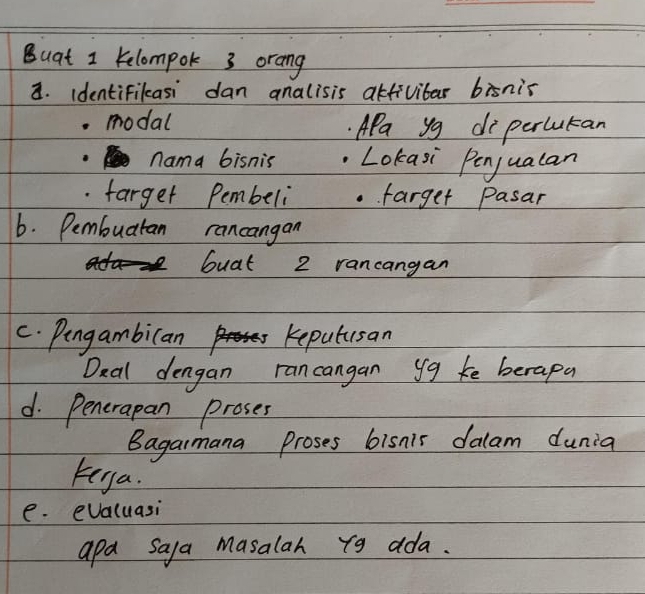 Buat 1 Kelompok 3 orang
a. identifikasi dan analisis aktivitas bisnis
• modal • Apa yg di perlukan
• nama bisnis • Lokasi Penjualan
• target Pembeli • target Pasar
b. Pembuatan rancangan
buat 2 rancangan
c. Pengambilan Keputusan
Deal dengan rancangan yg ke berapa
d. Penerapan Proses
Bagaimana Proses bisnis dalam dunia
kerja.
e. evaluasi
apa saja Masalah yg ada.